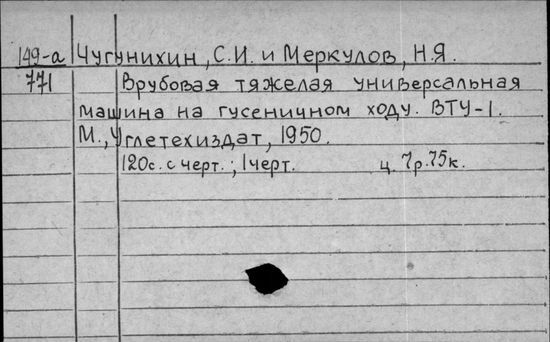 149-а Чугунихин, С.И. и Меркулов, Н.Я.
771 Врубовая тяжелая универсальная
машина на гусеничном ходу. ВТУ-1.
М., Углетехиздат, 1950.
120с. с черт.; 1черт. ц. 7р.75к.